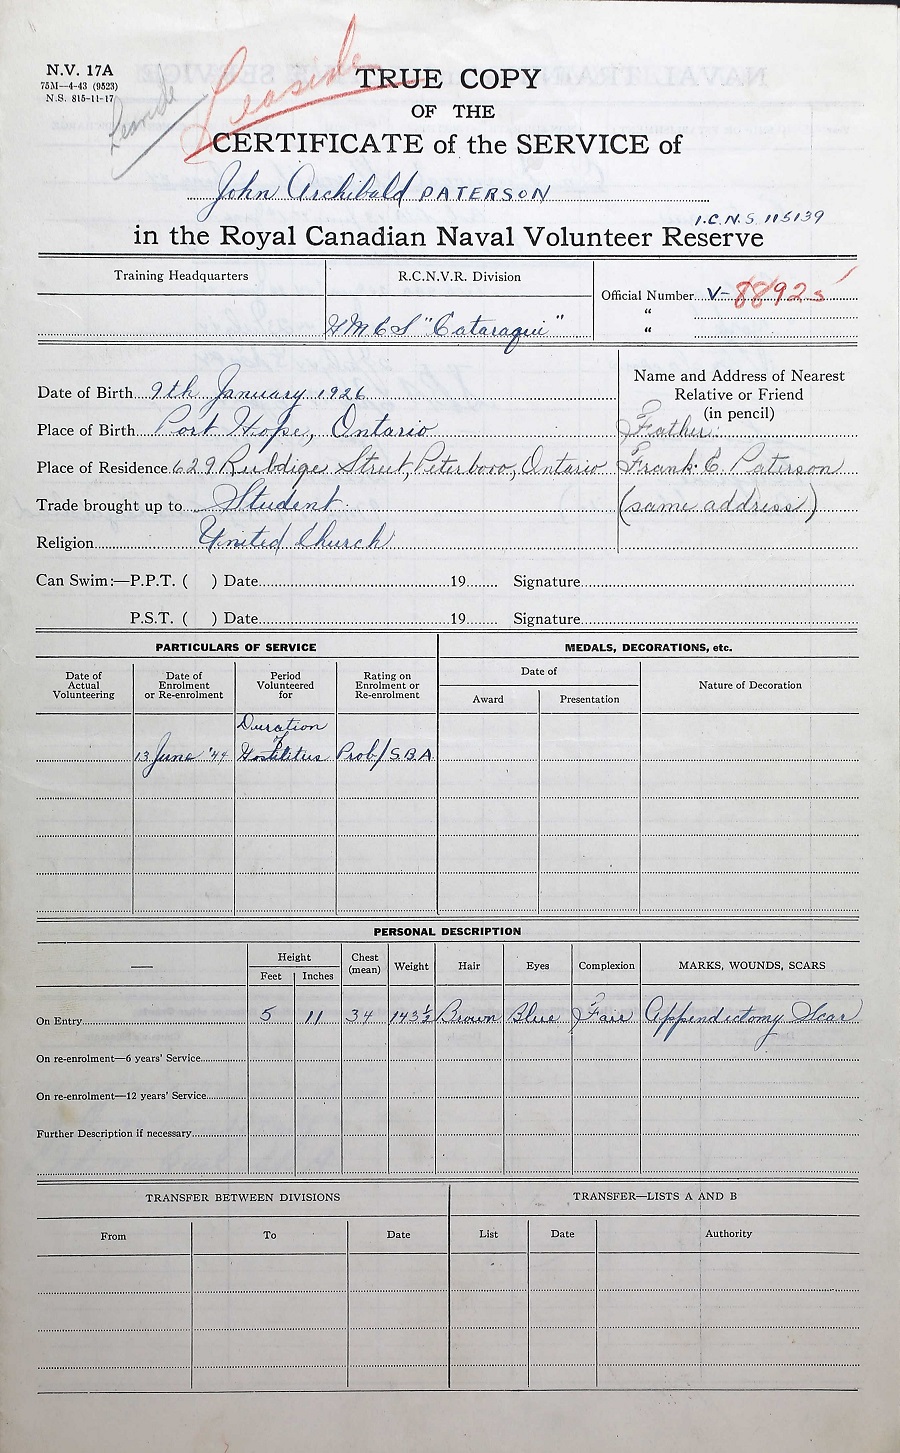 N.V. 17A
75M—4-43 (9523)
N.S. 815-11-17
Leaside
Leaside
TRUE COPY
OF THE
CERTIFICATE of the SERVICE of
John Archibald PATERSON
I.C.N.S 115139
in the Royal Canadian Naval Volunteer Reserve
Training Headquarters
R.C.N.V.R. Division
HMCS "Cataraqui"
Official Number V-88925
"
"
Date of Birth 9th January 1926
Place of Birth Port Hope, Ontario
Place of Residence 629 Rubdige Street, Peterboro, Ontario
Trade brought up to Student
Religion United Church
Name and Address of Nearest
Relative or Friend
(in pencil)
Father:
Frank E. Paterson
(same address)
Can Swim:—P.P.T. ( ) Date 19 Signature
P.S.T. ( ) Date 19 Signature
PARTICULARS OF SERVICE
MEDALS, DECORATIONS, etc.
Date of
Actual
Volunteering
Date of
Enrolment
or Re-enrolment
Period
Volunteered
for
Rating on
Enrolment or
Re-enrolment
Date of
Award
Presentation
Nature of Decoration
13 June '44
Duration
of
Hostilities
Prob/SBA
PERSONAL DESCRIPTION
—
Height
Feet
Inches
Chest
(mean)
Weight
Hair
Eyes
Complexion
MARKS, WOUNDS, SCARS
On Entry 5 11 34 143½ Brown Blue Fair Appendictomy Scar
On re-enrolment—6 years' Service
On re-enrolment—12 years' Service
Further Description if necessary
TRANSFER BETWEEN DIVISIONS
TRANSFER—LISTS A AND B
From
To
Date
List
Date
Authority